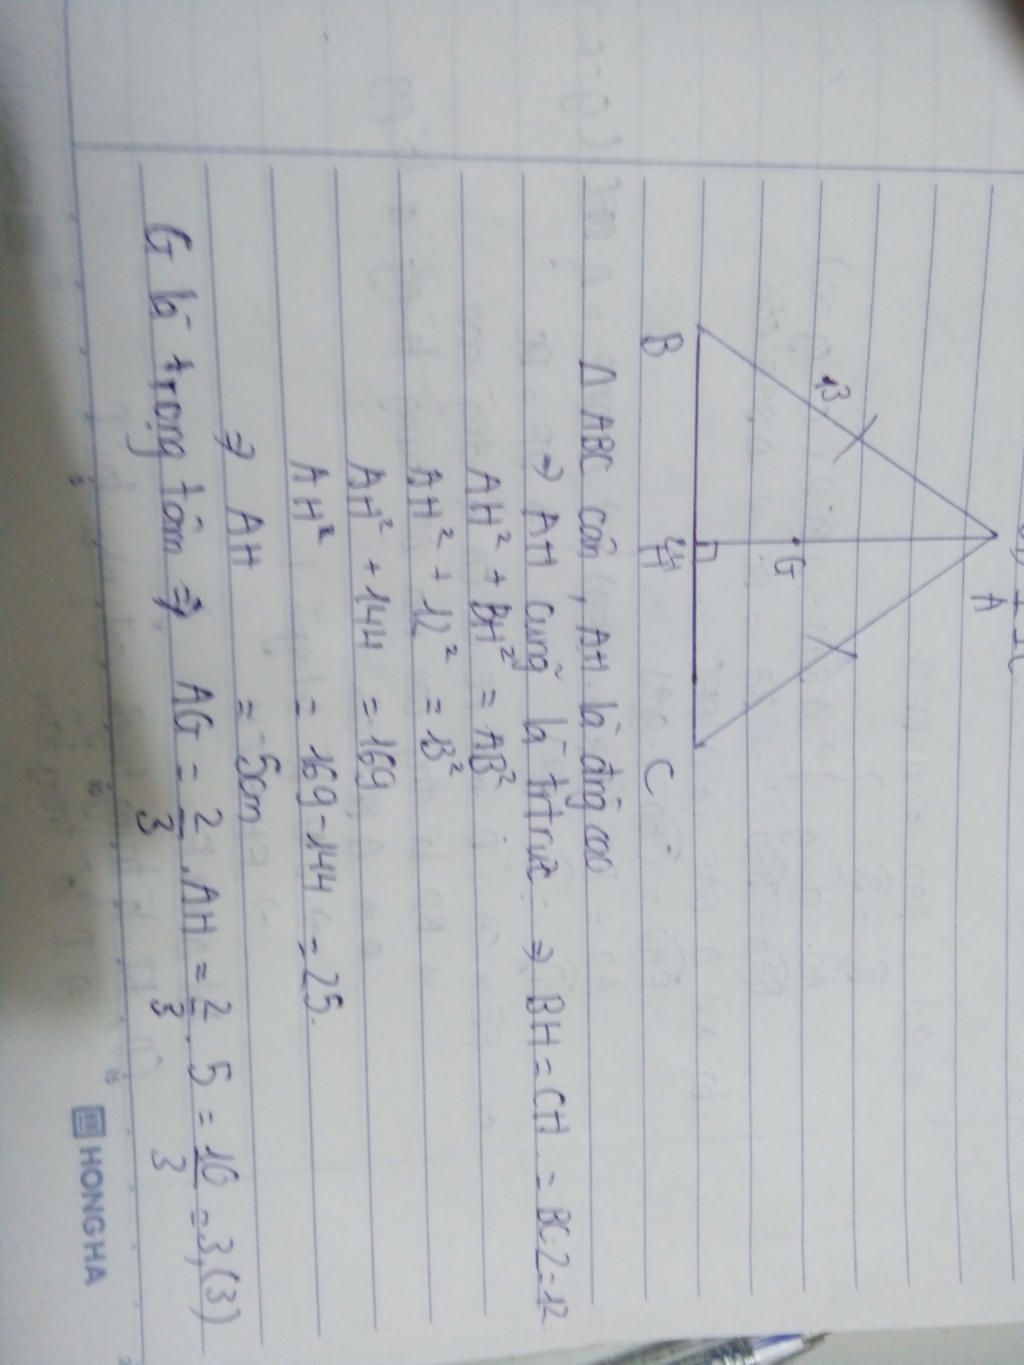 A
13
G
B
24
H
C
Δ ABC cân, AH là đg cao
⇒ AH cũng là trtrực ⇒ BH = CH = BC:2 = 12
AH² + BH² = AB²
AH² + 12² = 13²
AH² + 144 = 169
AH² = 169 - 144 = 25.
⇒ AH = 5cm
G là trọng tâm ⇒ AG = 2/3 . AH = 2/3 . 5 = 10/3 = 3,(3)
HONG HA